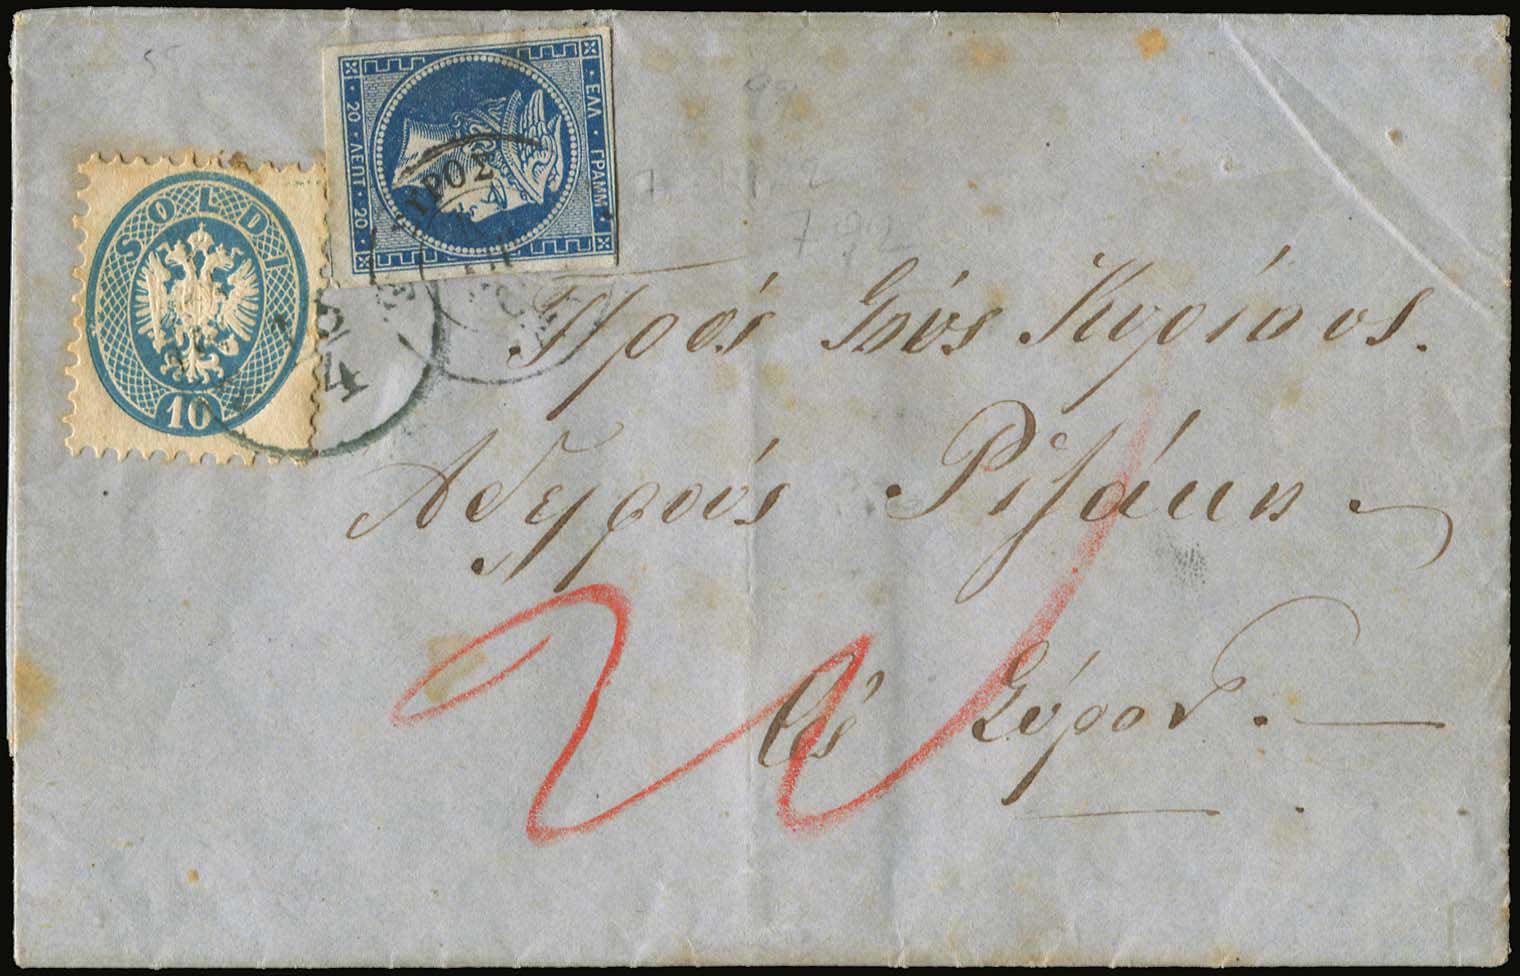 SOLDI
10
ΕΛΛ · ΓΡΑΜΜ
20 · ΛΕΠΤ · 20
ΣΥΡΟΣ
4
Πρὸς Τοὺς Κυρίους.
Ἀδελφοὺς Ῥιζάκη
Εἰς Σύρον.